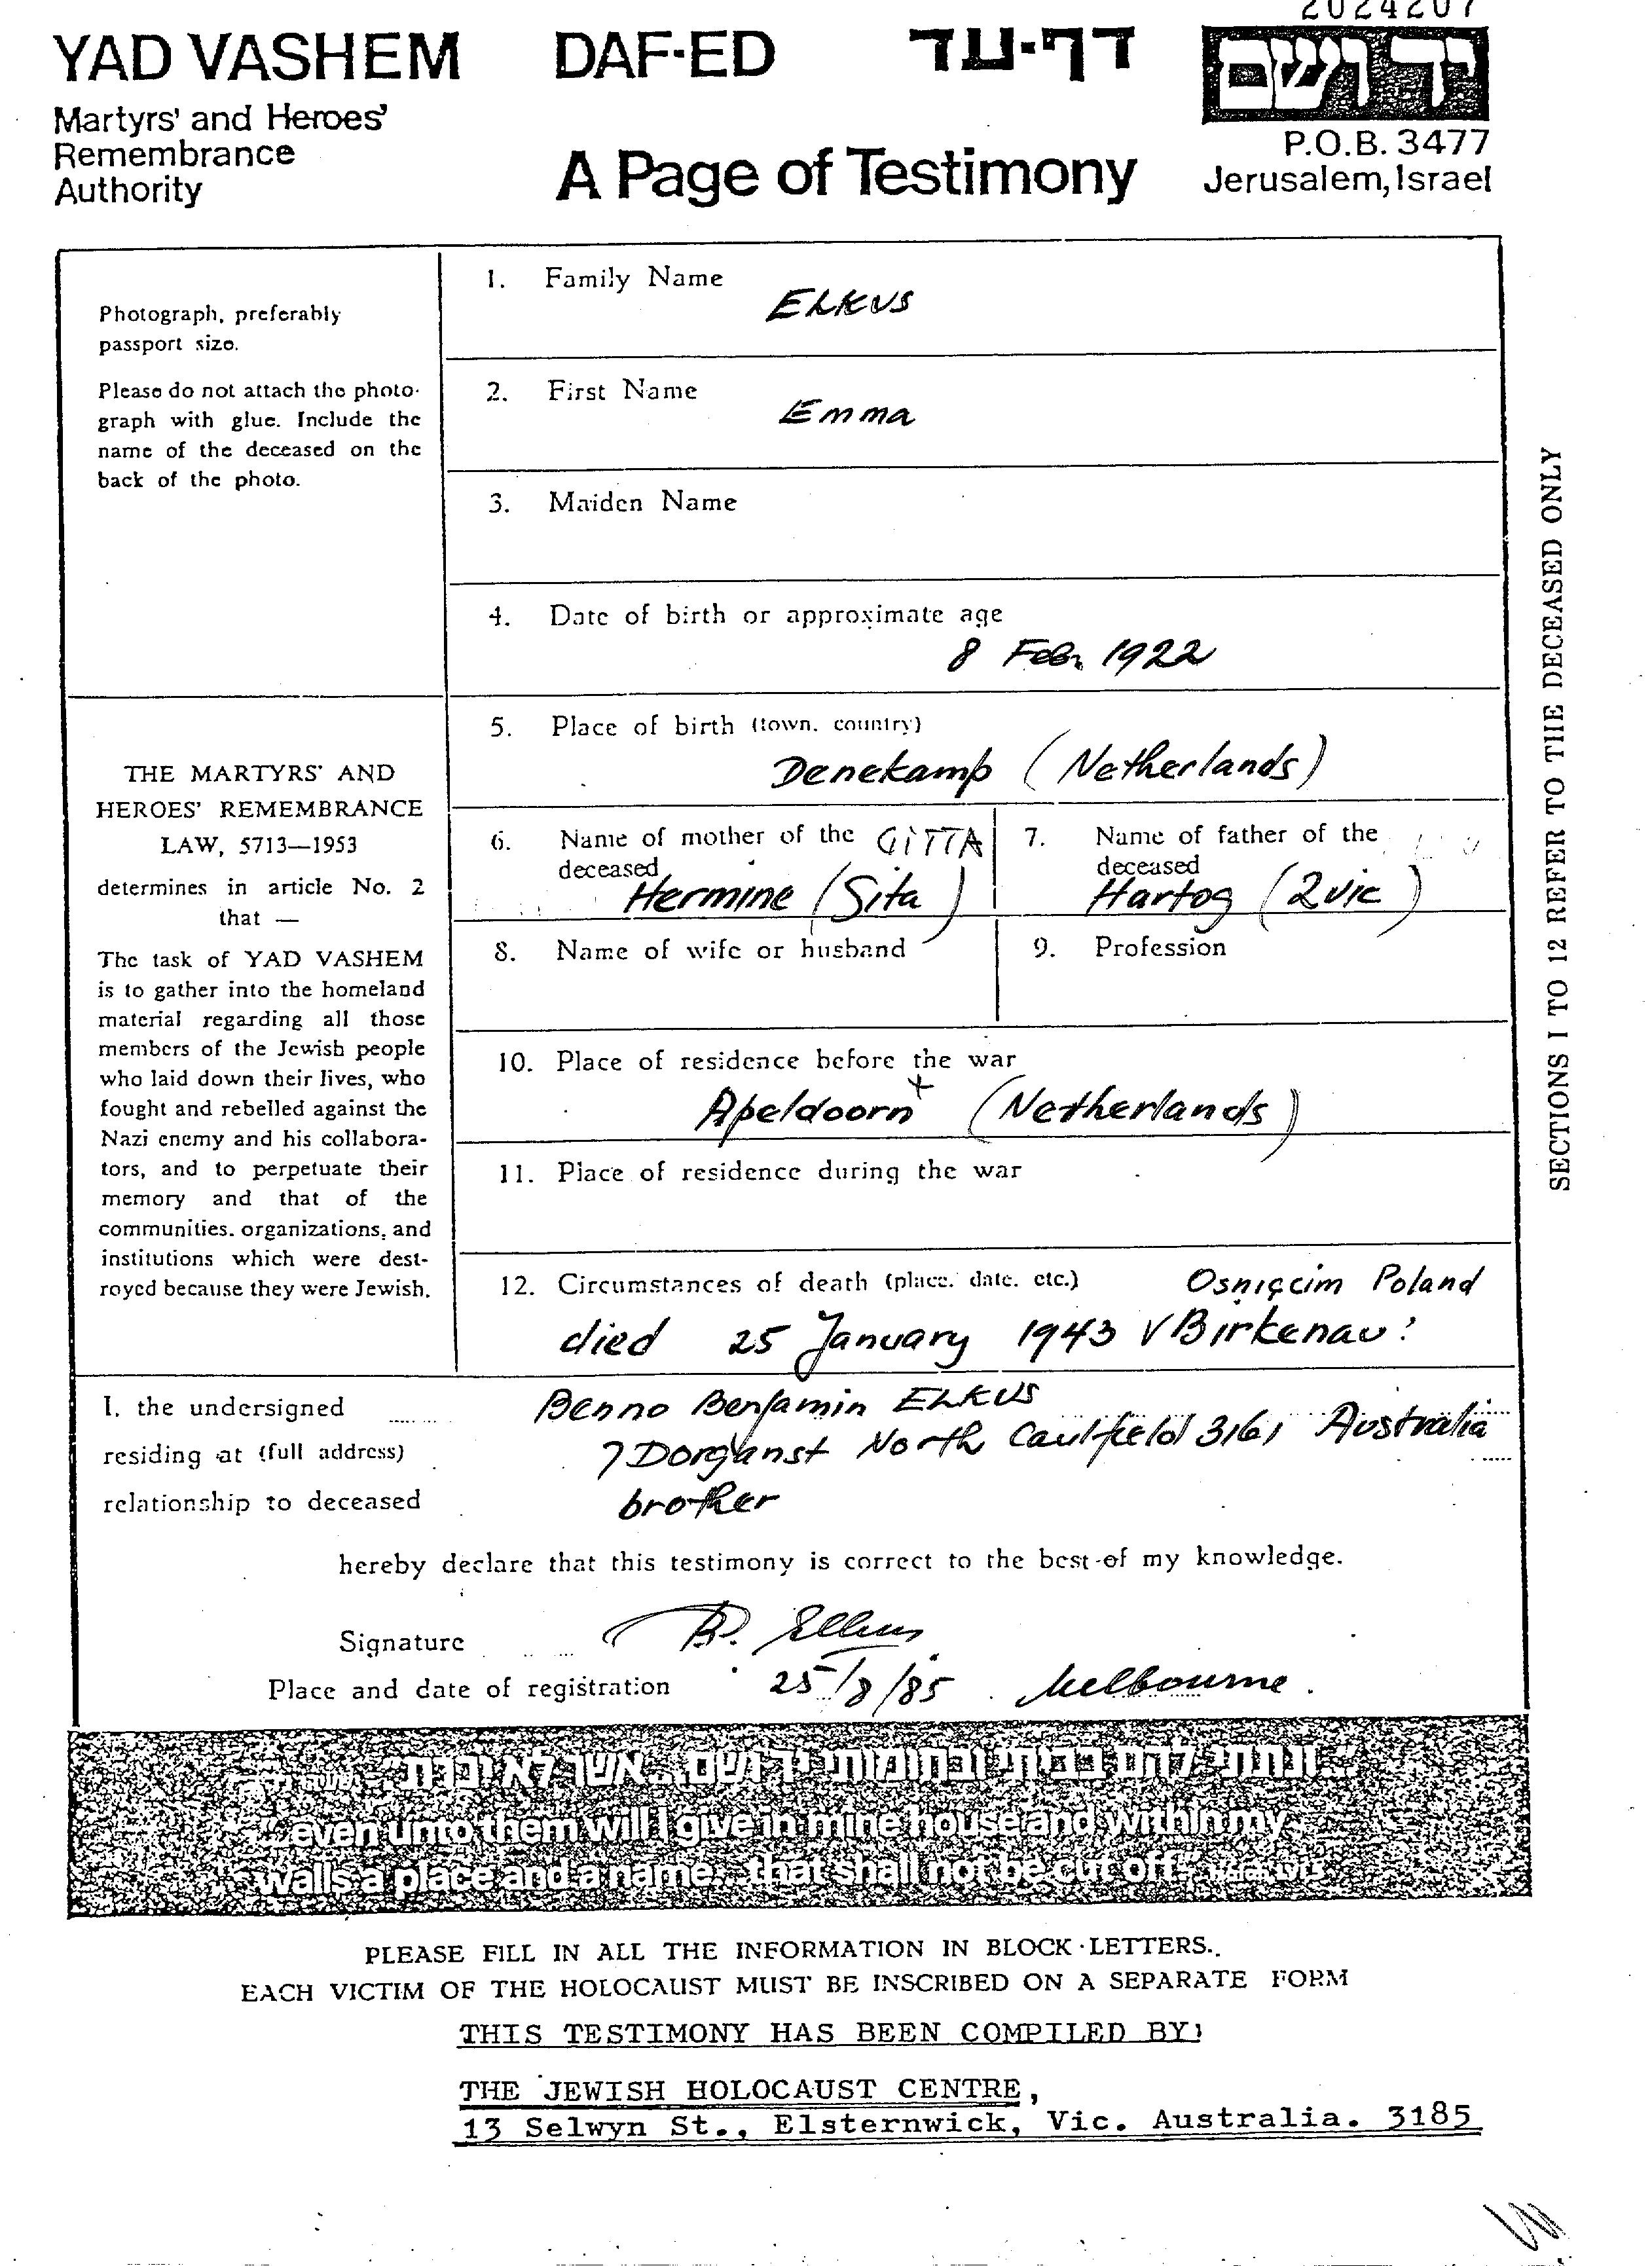 2024207
YAD VASHEM DAF-ED דף-עד ידושם
Martyrs' and Heroes'
Remembrance
Authority
A Page of Testimony
P.O.B. 3477
Jerusalem, Israel
Photograph, preferably
passport size.
Please do not attach the photo-
graph with glue. Include the
name of the deceased on the
back of the photo.
THE MARTYRS' AND
HEROES' REMEMBRANCE
LAW, 5713—1953
determines in article No. 2
that —
The task of YAD VASHEM
is to gather into the homeland
material regarding all those
members of the Jewish people
who laid down their lives, who
fought and rebelled against the
Nazi enemy and his collabora-
tors, and to perpetuate their
memory and that of the
communities, organizations, and
institutions which were dest-
royed because they were Jewish.
1. Family Name
ELKUS
2. First Name
Emma
3. Maiden Name
4. Date of birth or approximate age
8 Feb. 1922
5. Place of birth (town, country)
Denekamp (Netherlands)
6. Name of mother of the GITTA
deceased
Hermine (Sita)
7. Name of father of the
deceased
Hartog (Zvie)
8. Name of wife or husband
9. Profession
10. Place of residence before the war
Apeldoorn (Netherlands)
11. Place of residence during the war
12. Circumstances of death (place, date, etc.) Osnięcim Poland
died 25 January 1943 Birkenau
SECTIONS 1 TO 12 REFER TO THE DECEASED ONLY
I, the undersigned Benno Benjamin ELKUS
residing at (full address) 7 Dorganst North Caulfield 3161 Australia
relationship to deceased brother
hereby declare that this testimony is correct to the best of my knowledge.
Signature B. Elkus
Place and date of registration 25/8/85. Melbourne.
"...ונתתי להם בביתי ובחומותי יד ושם... אשר לא יכרת"
"...even unto them will I give in mine house and within my
walls a place and a name... that shall not be cut off"
PLEASE FILL IN ALL THE INFORMATION IN BLOCK LETTERS.
EACH VICTIM OF THE HOLOCAUST MUST BE INSCRIBED ON A SEPARATE FORM
THIS TESTIMONY HAS BEEN COMPILED BY:
THE JEWISH HOLOCAUST CENTRE,
13 Selwyn St., Elsternwick, Vic. Australia. 3185